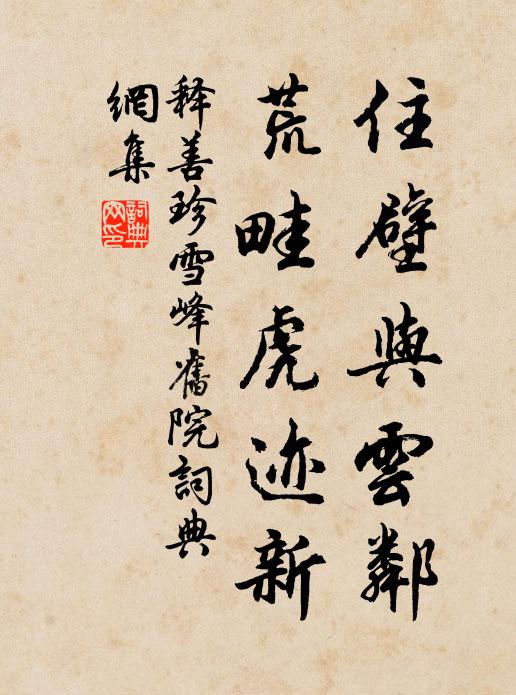 住壁與雲鄰
荒畦虎迹新
释善珍雪峰舊院詞典
網集
詞典
网印